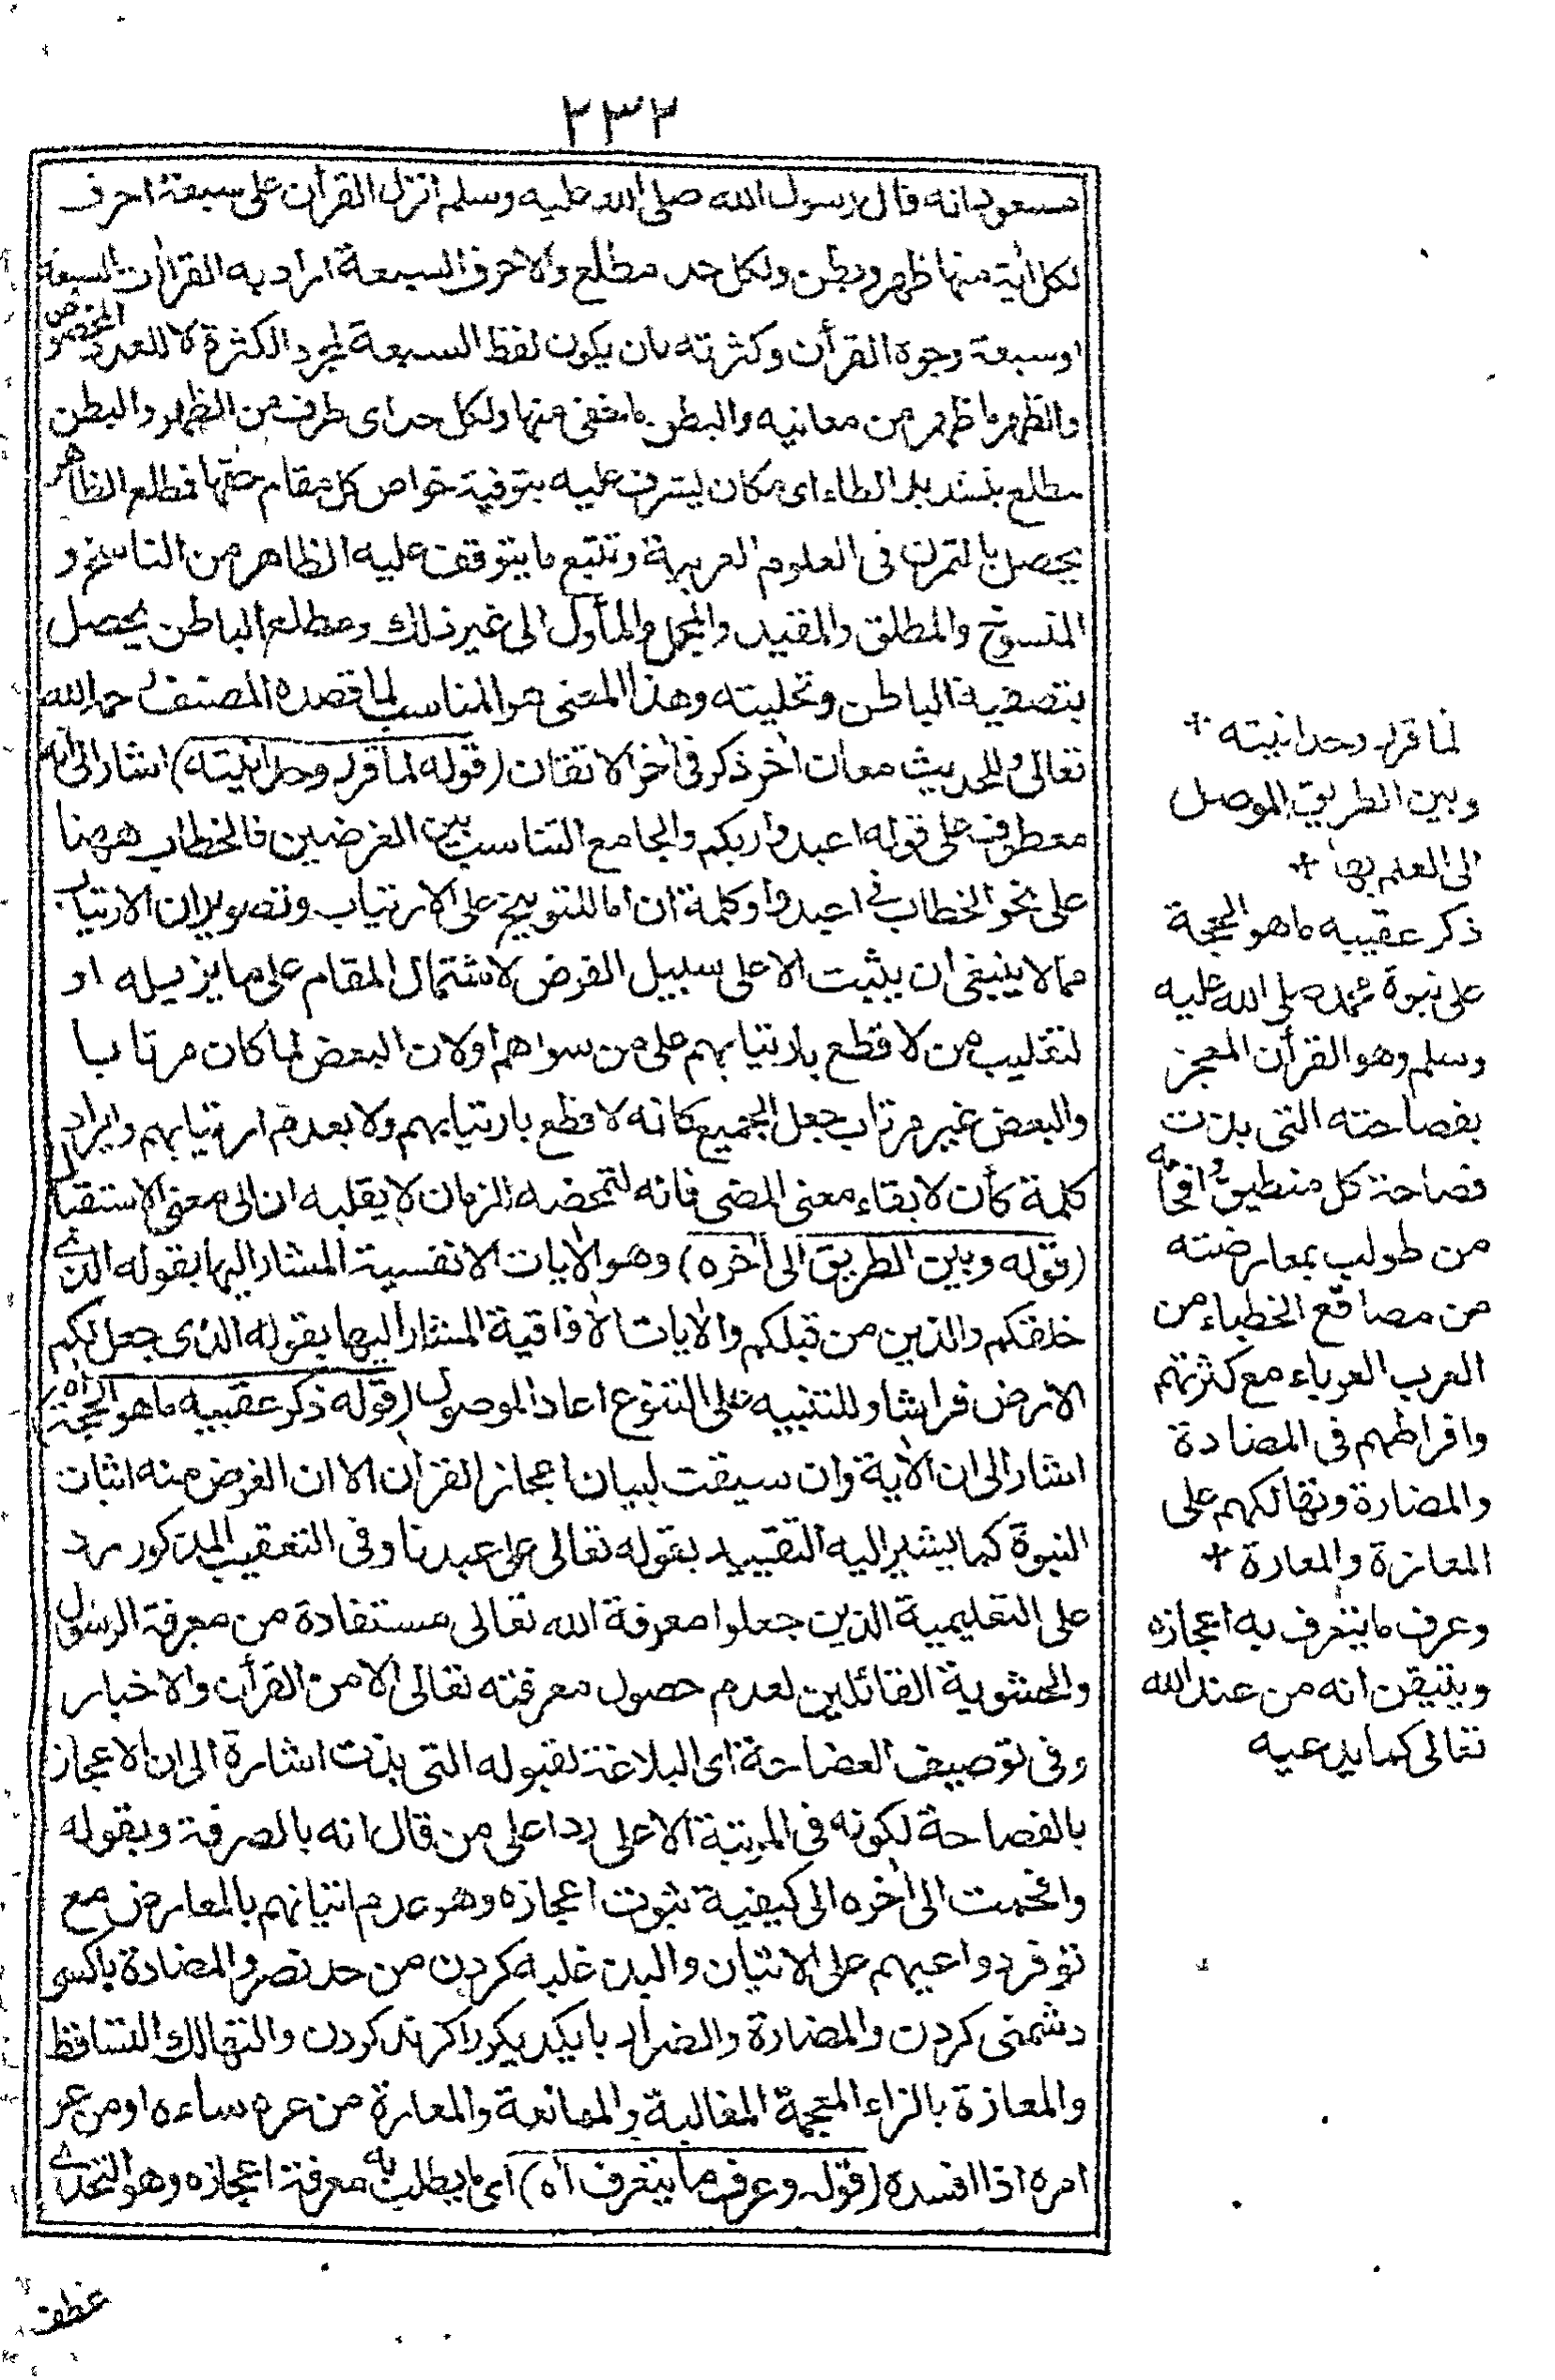 ٢٣٢
مسعود انه قال رسول الله صلى الله عليه وسلم انزل القرأن على سبعة احرف
لكل أية منها ظهر وبطن ولكل حد مطلع والاحرف السبعة اراد به القراأت السبعة
اوسبعة وجوه القرأن وكثرته بان يكون لفظ السبعة لمجرد الكثرة لا للعدد المخصوص
والظهر ما ظهر من معانيه والبطن ما خفى منها ولكل حد اى طرف من الظهر والبطن
مطلع بتشديد الطاء اى مكان يشرف عليه بتوفية خواص كل مقام حقها فمطلع الظاهر
يحصل بالتمرن فى العلوم العربية وتتبع ما يتوقف عليه الظاهر من الناسخ و
المنسوخ والمطلق والمقيد والمجمل والمأول الى غير ذلك ومطلع الباطن يحصل
بتصفية الباطن وتحليته وهذا المعنى هو المناسب لما قصده المصنف رحمه الله
تعالى وللحديث معان اخر ذكر فى أخر الاتقان (قوله لما قرر وحدانيته) اشار الى انه
معطوف على قوله اعبدوا ربكم والجامع التناسب بين الغرضين فالخطاب ههنا
على نحو الخطاب فى اعبدوا وكلمة ان اما للتوبيخ على الارتياب وتصوير ان الارتياب
مما لا ينبغى ان يثبت الا على سبيل الفرض لاشتمال المقام على ما يزيله او
لتغليب من لا قطع بارتيابهم على من سواهم اولان البعض لما كان مرتابا
والبعض غير مرتاب جعل الجميع كانه لا قطع بارتيابهم ولا بعدم ارتيابهم وايراد
كلمة كأن لابقاء معنى المضى فانه لتمحضه للزمان لا يقلبه ان الى معنى الاستقبال
(قوله وبين الطريق الى أخره) وهو الأيات الانفسية المشار اليها بقوله الذى
خلقكم والذين من قبلكم والأيات الأفاقية المشار اليها بقوله الذى جعل لكم
الارض فراشا وللتنبيه على التنوع اعاد الموصول (قوله ذكر عقيبه ما هو الحجة اه)
اشار الى ان الأية وان سيقت لبيان اعجاز القرأن الا ان الغرض منه اثبات
النبوة كما يشير اليه التقييد بقوله تعالى على عبدنا وفى التعقيب المذكور رد
على التعليمية الذين جعلوا معرفة الله تعالى مستفادة من معرفة الرسول
والحشوية القائلين لعدم حصول معرفته تعالى الا من القرأن والاخبار
وفى توصيف الفصاحة اى البلاغة لقبوله التى بذت اشارة الى ان الاعجاز
بالفصاحة لكونه فى المرتبة الاعلى ردا على من قال انه بالصرفة وبقوله
وافحمت الى أخره الى كيفية ثبوت اعجازه وهو عدم اتيانهم بالمعارض مع
توفر دواعيهم على الاتيان والبذ غلبه كردن من حد نصر والمضادة باكسى
دشمنى كردن والمضارة والضرار بايكديكر را كزند كردن والتهالك التساقط
والمعازة بالزاء المعجمة المغالبة والممانعة والمعارة من عره ساءه اومن عر
امره اذا افسده (قوله وعرف ما يتعرف اه) اى ما يطلب به معرفة اعجازه وهو التحدى
لما قرر وحدانيته +
وبين الطريق الموصل
الى العلم بها +
ذكر عقيبه ما هو الحجة
على نبوة محمد صلى الله عليه
وسلم وهو القرأن المعجز
بفصاحته التى بذت
فصاحة كل منطيق وافحامه
من طولب بمعارضته
من مصاقع الخطباء من
العرب العرباء مع كثرتهم
وافراطهم فى المضادة
والمضارة وتهالكهم على
المعازة والمعارة +
وعرف ما يتعرف به اعجازه
ويتيقن انه من عند الله
تعالى كما يدعيه